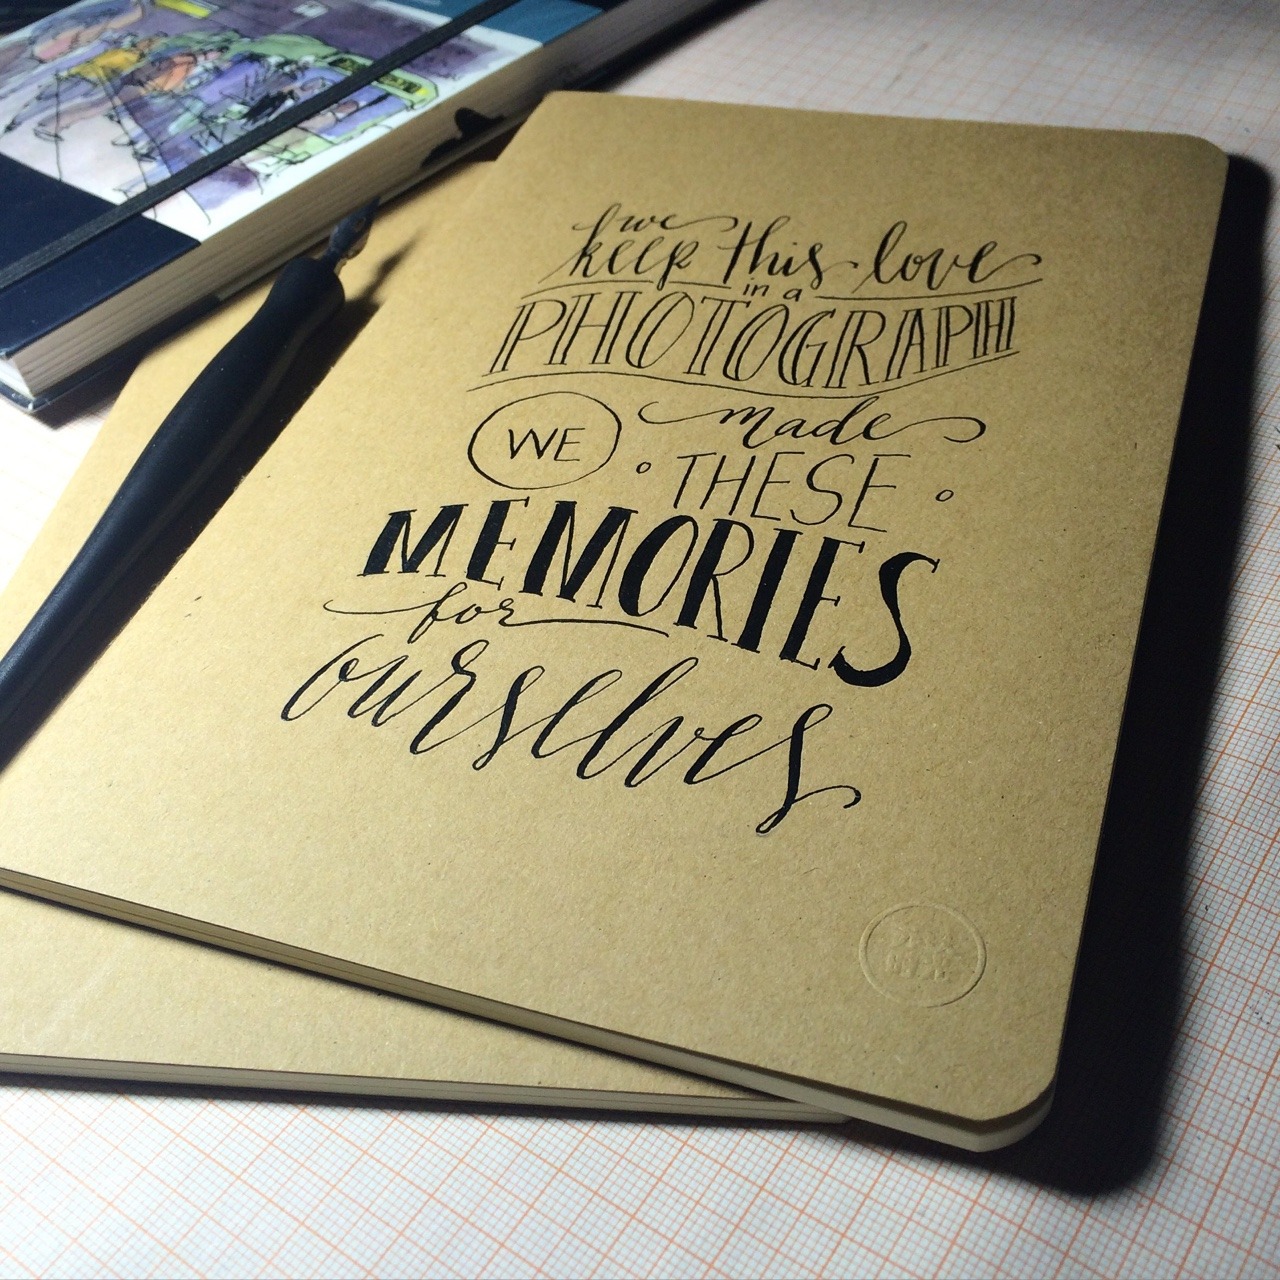 we
keep this love
in a
PHOTOGRAPH
WE made
THESE
MEMORIES
for
ourselves